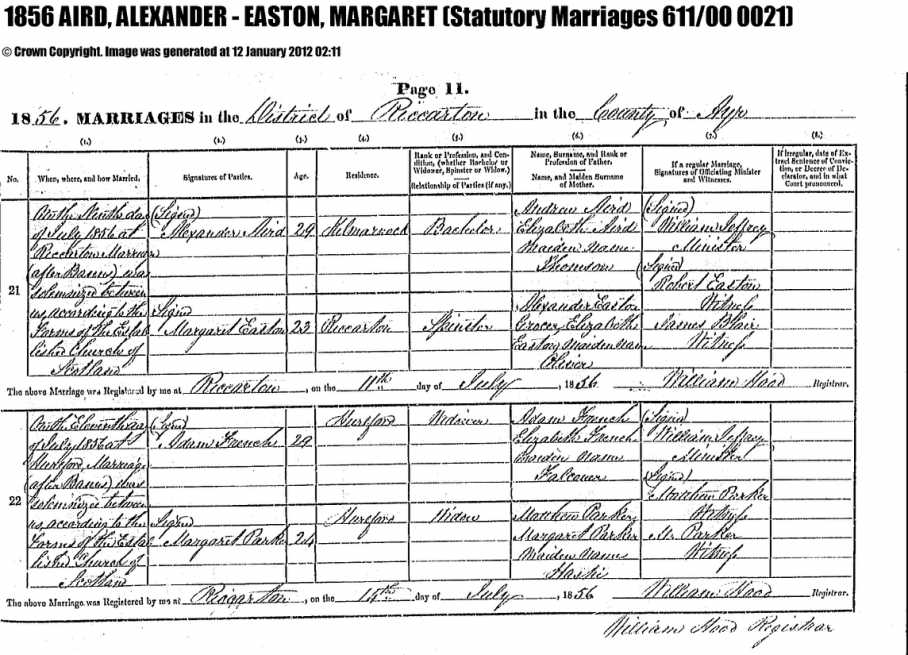 1856 AIRD, ALEXANDER - EASTON, MARGARET (Statutory Marriages 611/00 0021)
© Crown Copyright. Image was generated at 12 January 2012 02:11
Page 11.
1856. MARRIAGES in the District of Riccarton in the County of Ayr
(1.) (2.) (3.) (4.) (5.) (6.) (7.) (8.)
No.
When, where, and how Married.
Signatures of Parties.
Age.
Residence.
Rank or Profession, and Con-
dition, (whether Bachelor or
Widower, Spinster or Widow.)
Relationship of Parties (if any.)
Name, Surname, and Rank or
Profession of Father.
Name, and Maiden Surname
of Mother.
If a regular Marriage,
Signatures of Officiating Minister
and Witnesses.
If irregular, date of Ex-
tract Sentence of Convic-
tion, or Decree of De-
clarator, and in what
Court pronounced.
21
On the Ninth day
of July 1856 at
Riccarton Marriage
(after Banns) was
solemnized between
us, according to the
Forms of the Estab
lished Church of
Scotland
(Signd)
Alexander Aird
Signd
Margaret Easton
29
23
Kilmarnock
Riccarton
Bachelor
Spinster
Andrew Aird
Elizabeth Aird
Maiden Name
Thomson
Alexander Easton
Grocer Elizabeth
Easton Maiden Name
Oliver
(Signd)
William Jeffrey
Minister
(Signd)
Robert Easton
Witness
James Blair
Witness
The above Marriage was Registered by me at Riccarton, on the 11th day of July, 1856 William Hood Registrar.
22
On the Eleventh day
of July 1856 at
Hurlford, Marriage
(after Banns) was
solemnized between
us, according to the
Forms of the Estab
lished Church of
Scotland
(Signd)
Adam French
Signd
Margaret Parker
29
24
Hurlford
Hurlford
Widower
Widow
Adam French
Elizabeth French
Maiden Name
Falconer
Matthew Parker
Margaret Parker
Maiden Name
(Signd)
William Jeffrey
Minister
(Signd)
Matthew Parker
Witness
Parker
Witness
The above Marriage was Registered by me at Riccarton, on the 15th day of July, 1856 William Hood Registrar.
William Hood Registrar